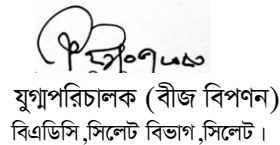 যুগ্মপরিচালক (বীজ বিপণন)
বিএডিসি,সিলেট বিভাগ,সিলেট।